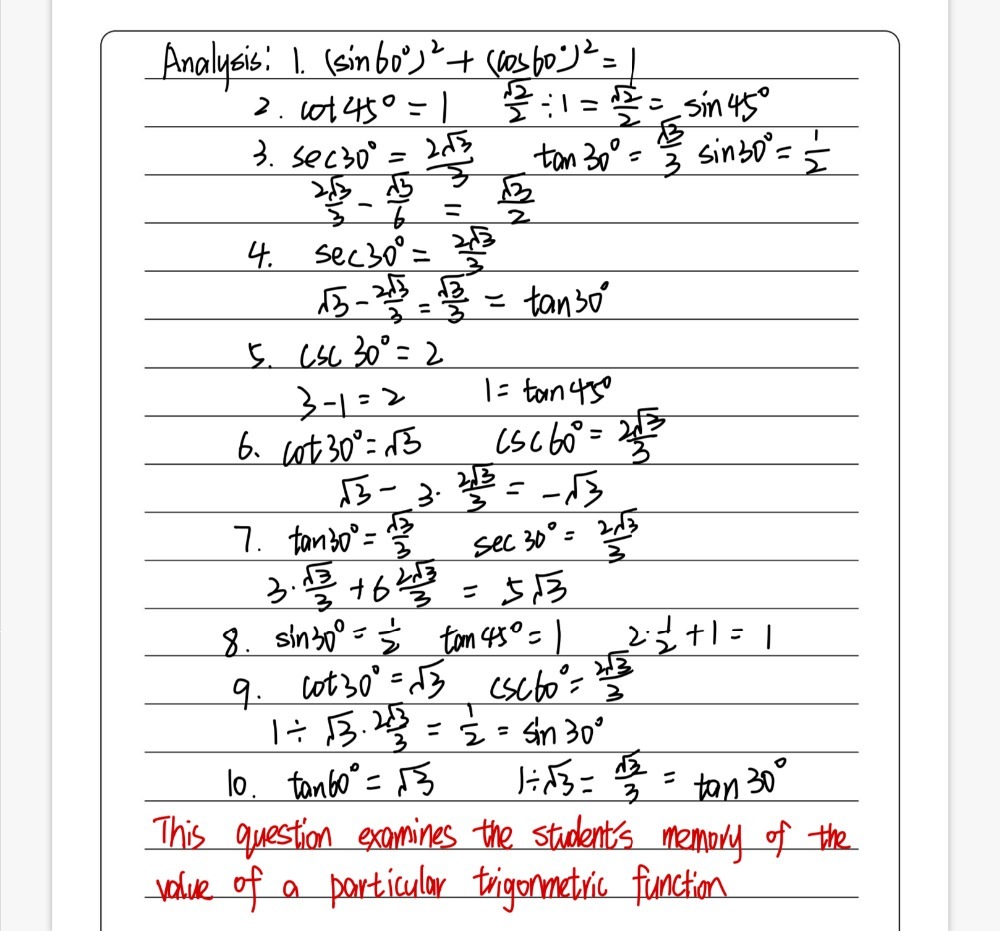 Analysis: 1. (sin60°)² + (cos60°)² = 1
2. cot45° = 1 √2/2 ÷ 1 = √2/2 = sin45°
3. sec30° = 2√3/3 tan30° = √3/3 sin30° = 1/2
2√3/3 - √3/6 = √3/2
4. sec30° = 2√3/3
√3 - 2√3/3 = √3/3 = tan30°
5. csc30° = 2
3-1=2 1 = tan45°
6. cot30° = √3 csc60° = 2√3/3
√3 - 3·2√3/3 = -√3
7. tan30° = √3/3 sec30° = 2√3/3
3·√3/3 + 6 2√3/3 = 5√3
8. sin30° = 1/2 tan45° = 1 2·1/2 + 1 = 1
9. cot30° = √3 csc60° = 2√3/3
1 ÷ √3·2√3/3 = 1/2 = sin30°
10. tan60° = √3 1÷√3 = √3/3 = tan30°
This question examines the student's memory of the
value of a particular trigonmetric function